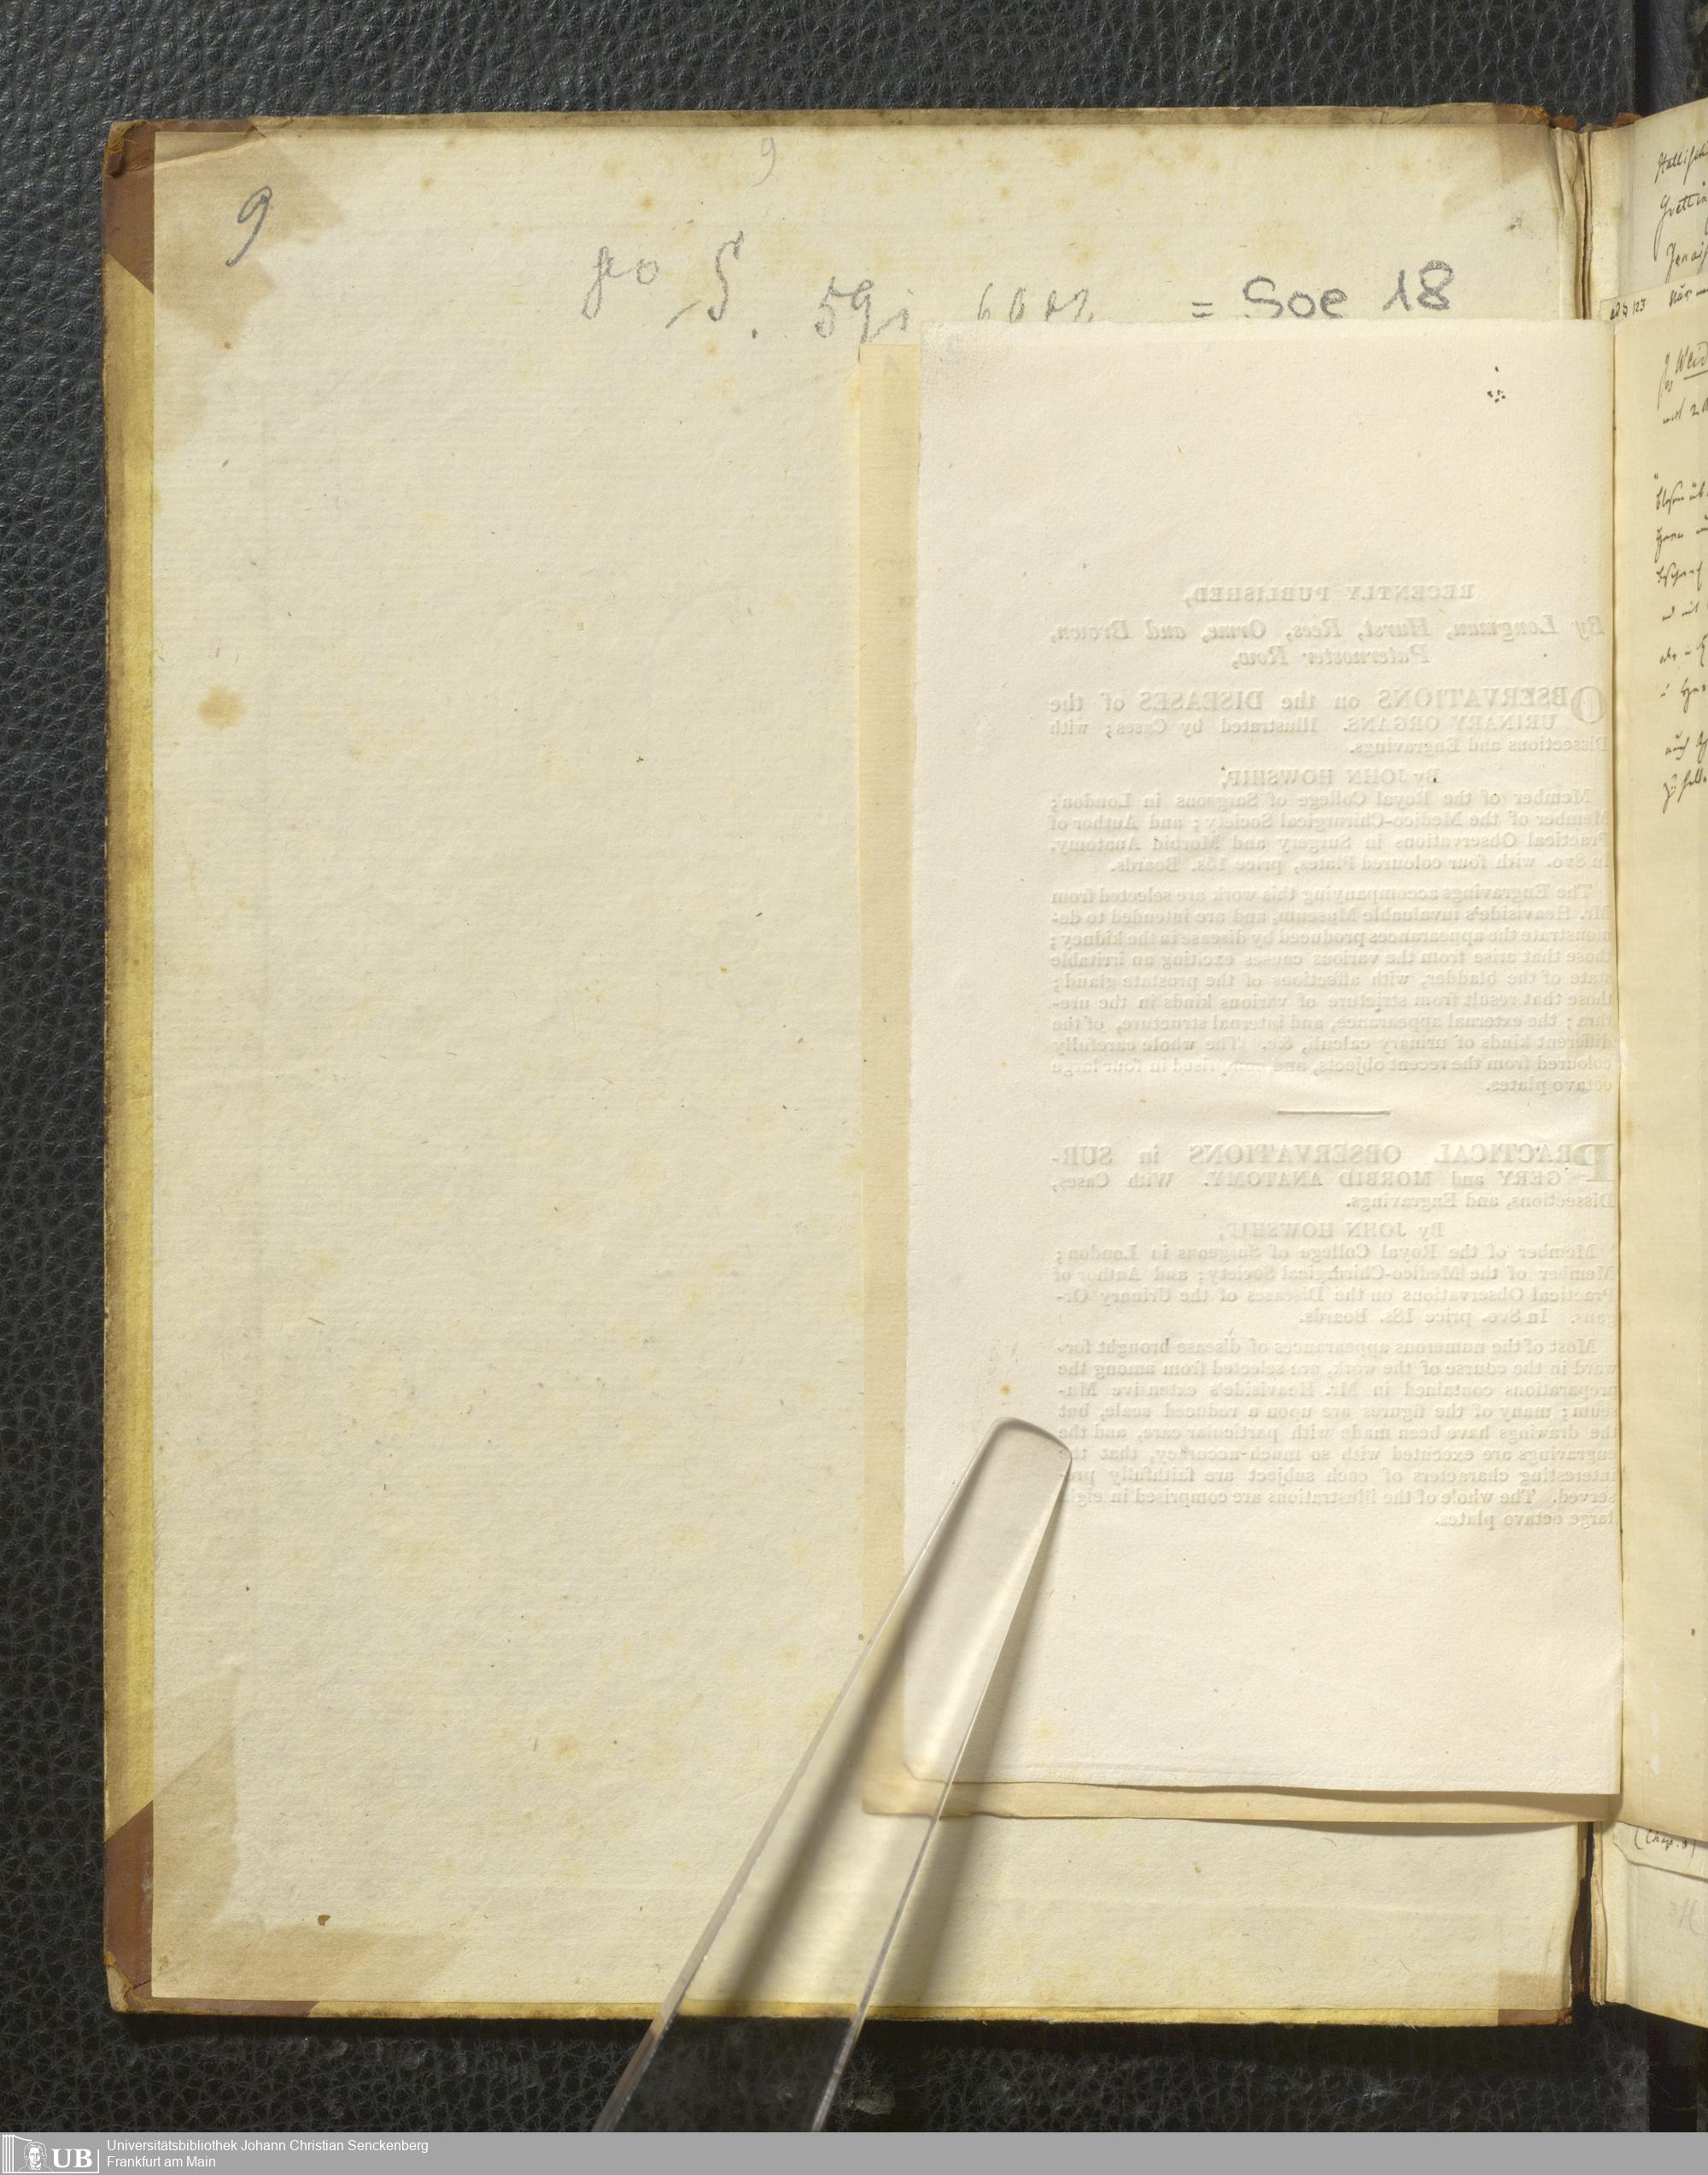 9
9
= Soe 18
RECENTLY PUBLISHED,
By Longman, Hurst, Rees, Orme, and Brown,
Paternoster Row,
OBSERVATIONS on the DISEASES of the
URINARY ORGANS. Illustrated by Cases; with
Dissections and Engravings.
By JOHN HOWSHIP,
Member of the Royal College of Surgeons in London;
Member of the Medico-Chirurgical Society; and Author of
Practical Observations in Surgery and Morbid Anatomy.
In 8vo. with four coloured Plates, price 15s. Boards.
The Engravings accompanying this work are selected from
Mr. Heaviside's invaluable Museum, and are intended to de-
monstrate the appearances produced by disease in the kidney;
those that arise from the various causes exciting an irritable
state of the bladder, with affections of the prostate gland;
those that result from stricture of various kinds in the ure-
thra; the external appearance, and internal structure, of the
different kinds of urinary calculi, &c. The whole carefully
coloured from the recent objects, and comprised in four large
octavo plates.
PRACTICAL OBSERVATIONS in SUR-
GERY and MORBID ANATOMY. With Cases,
Dissections, and Engravings.
By JOHN HOWSHIP,
Member of the Royal College of Surgeons in London;
Member of the Medico-Chirurgical Society; and Author of
Practical Observations on the Diseases of the Urinary Or-
gans. In 8vo. price 18s. Boards.
Most of the numerous appearances of disease brought for-
ward in the course of the work, are selected from among the
preparations contained in Mr. Heaviside's extensive Mu-
seum; many of the figures are upon a reduced scale, but
the drawings have been made with particular care, and the
engravings are executed with so much accuracy, that the
interesting characters of each subject are faithfully pre-
served. The whole of the illustrations are comprised in eight
large octavo plates.
(Chap. 8)
UB
Universitätsbibliothek Johann Christian Senckenberg
Frankfurt am Main